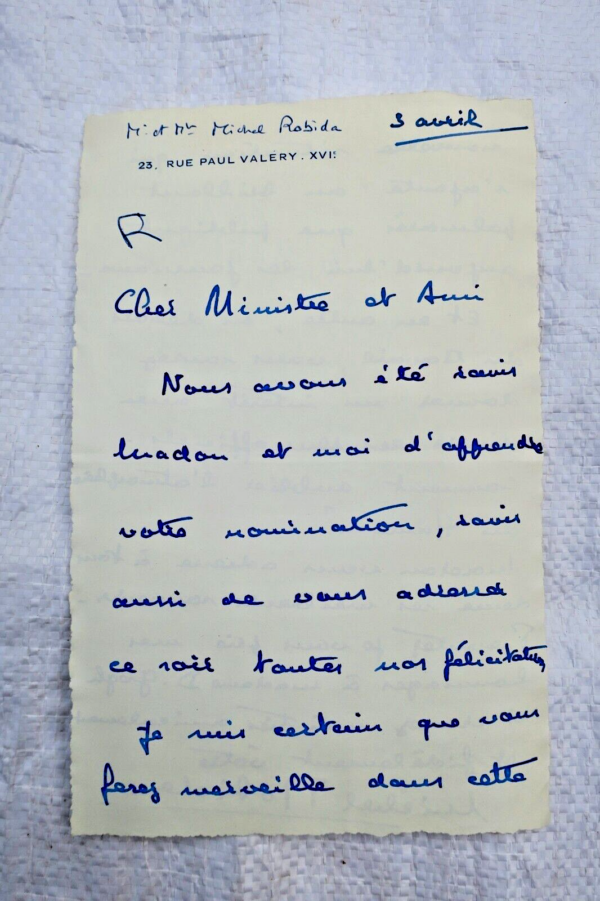 Mr et Mme Michel Robida
3 avril
23, RUE PAUL VALERY. XVIE
R
Cher Ministre et Ami
Nous avons été ravis
Madou et moi d'apprendre
votre nomination, ravis
aussi de vous adresser
ce soir toutes nos félicitations
Je suis certain que vous
ferez merveille dans cette